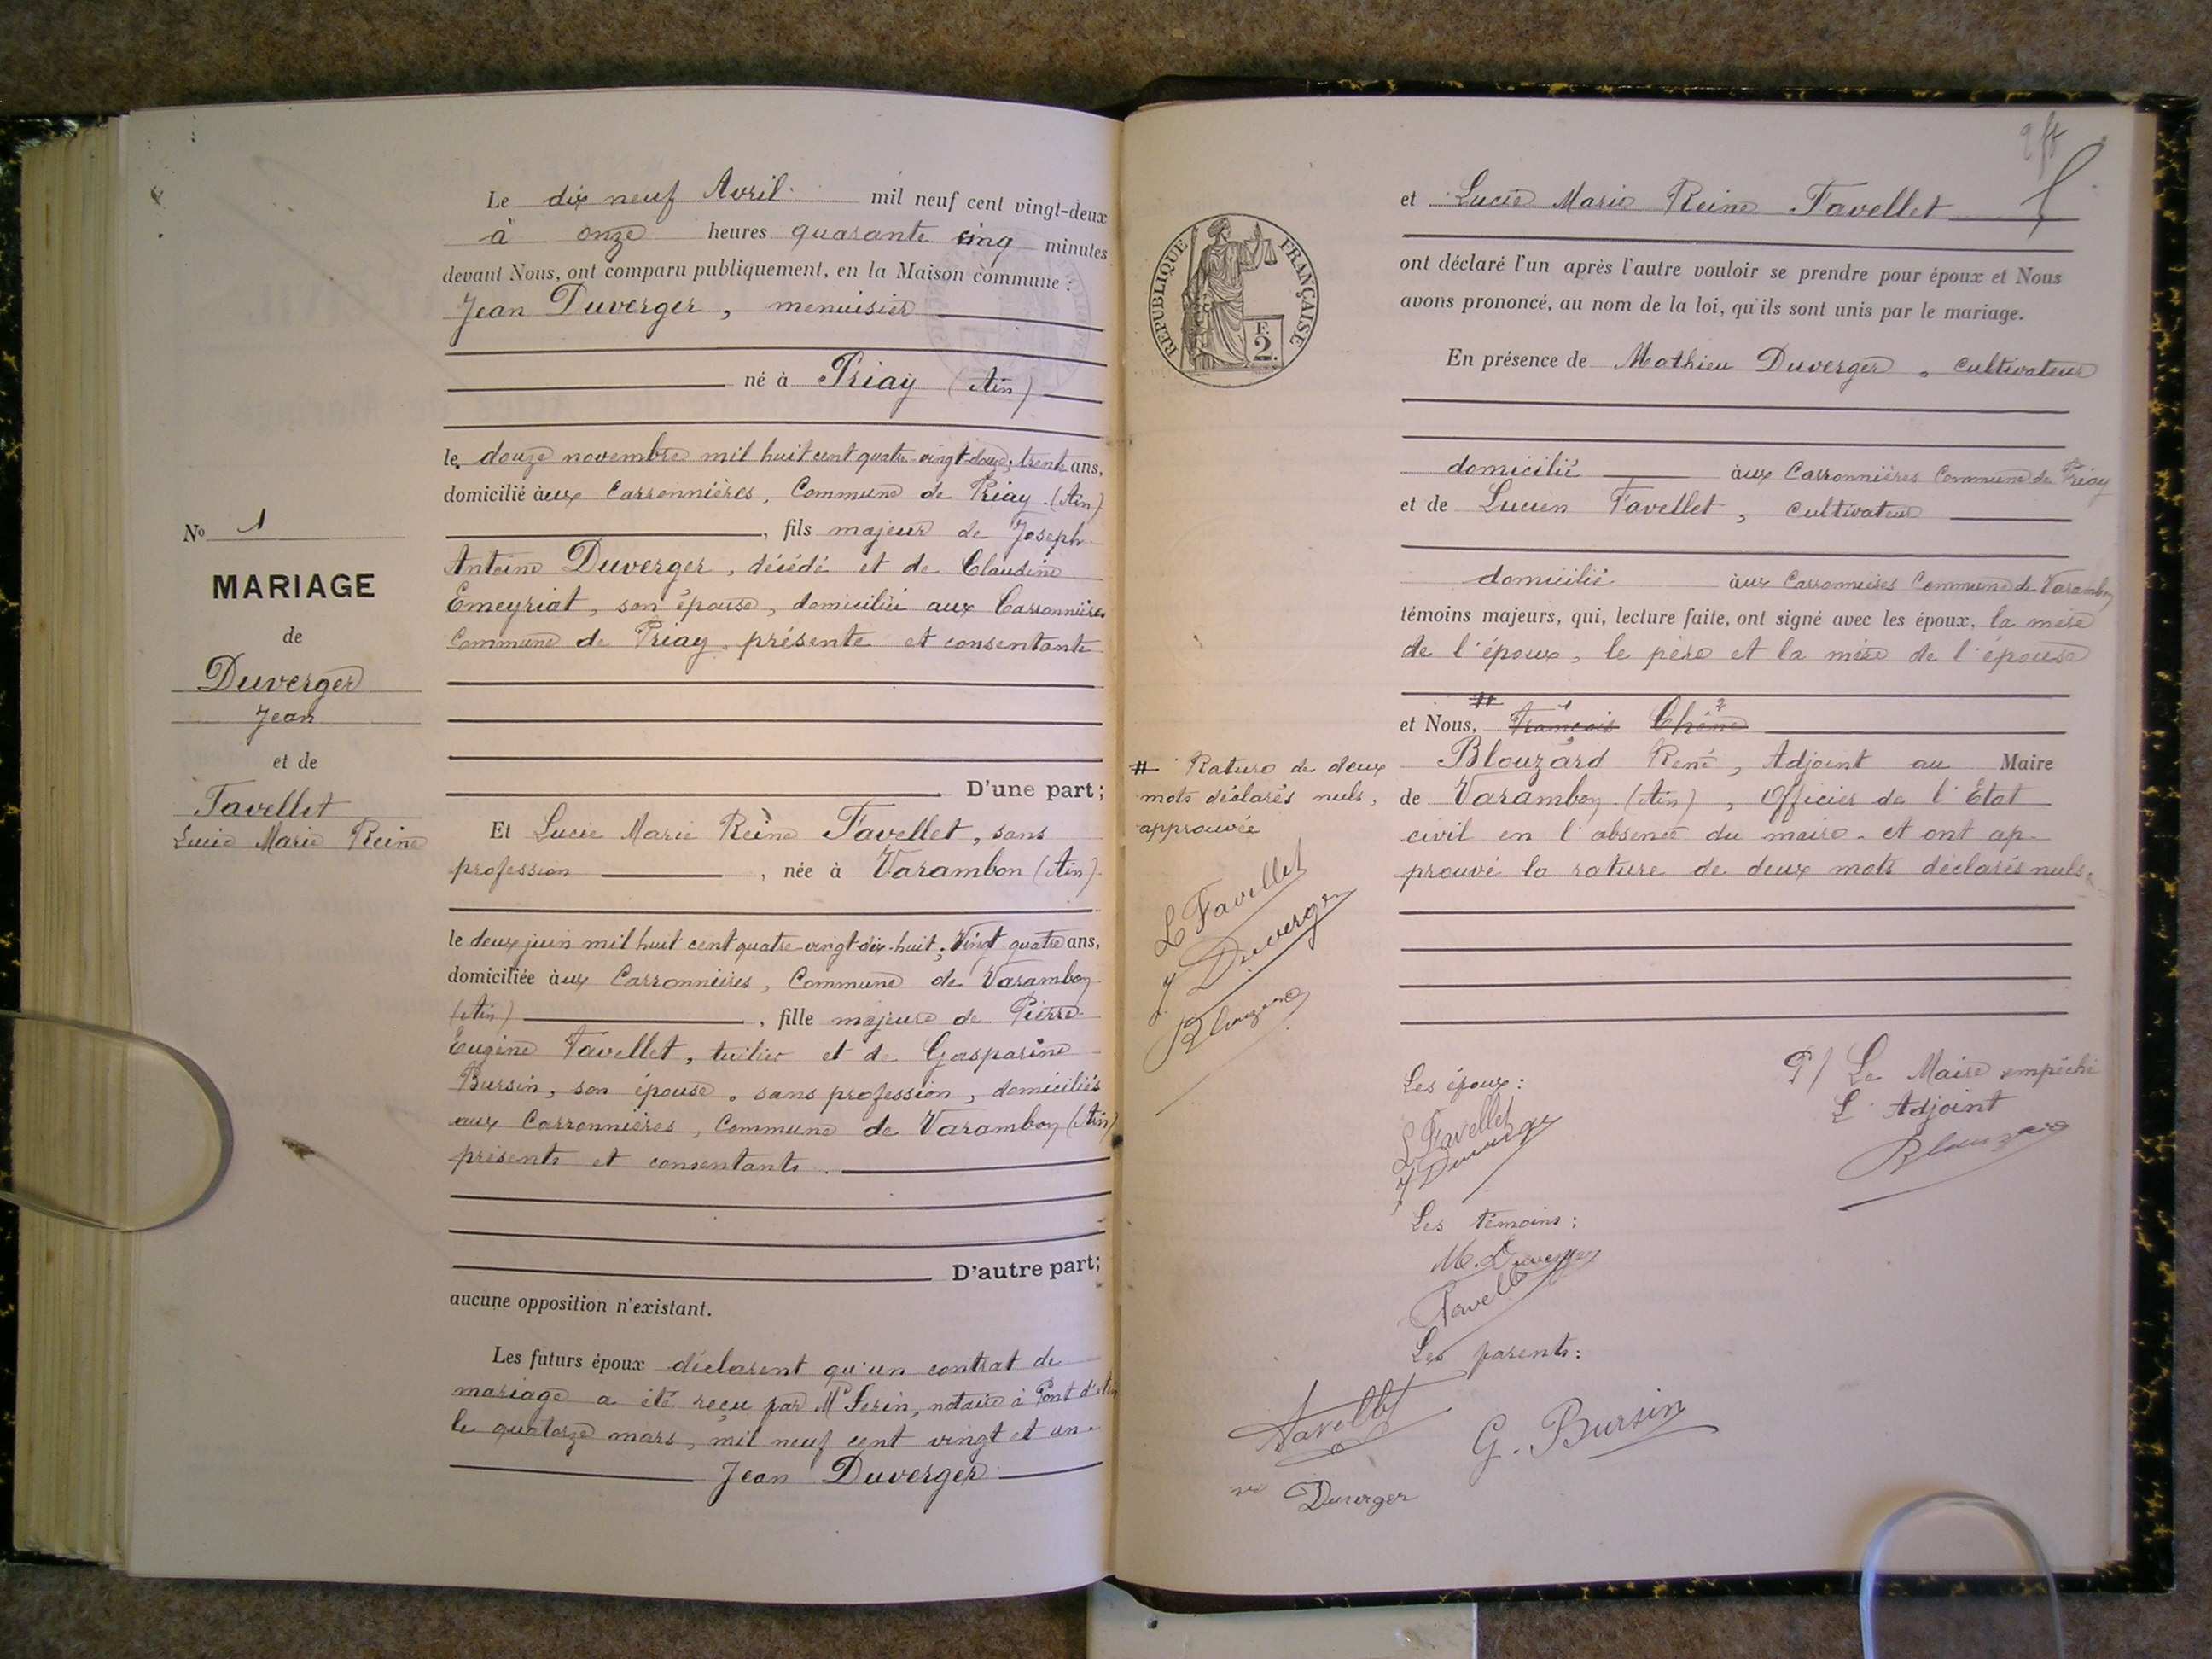 Le dix neuf Avril mil neuf cent vingt-deux
à onze heures quarante cinq minutes
devant Nous, ont comparu publiquement, en la Maison commune :
Jean Duverger, menuisier
né à Priay (Ain)
le douze novembre mil huit cent quatre-vingt-douze, trente ans,
domicilié aux Carronnières, Commune de Priay (Ain)
, fils majeur de Joseph
Antoine Duverger, décédé et de Claudine
Emeyriat, son épouse, domiciliée aux Carronnières
Commune de Priay présente et consentante
D'une part ;
Et Lucie Marie Reine Favellet, sans
profession , née à Varambon (Ain)
le deux juin mil huit cent quatre-vingt-dix-huit, Vingt quatre ans,
domiciliée aux Carronnières, Commune de Varambon
(Ain) , fille majeure de Pierre
Eugène Favellet, tuilier et de Gasparine
Bursin, son épouse, sans profession, domiciliés
aux Carronnières, Commune de Varambon (Ain)
présents et consentants.
D'autre part;
aucune opposition n'existant.
Les futurs époux déclarent qu'un contrat de
mariage a été reçu par Me Ferin, notaire à Pont d'Ain
le quatorze mars, mil neuf cent vingt et un.
Jean Duverger
No 1
MARIAGE
de
Duverger
Jean
et de
Favellet
Lucie Marie Reine
REPUBLIQUE FRANÇAISE
F.
2.
et Lucie Marie Reine Favellet
ont déclaré l'un après l'autre vouloir se prendre pour époux et Nous
avons prononcé, au nom de la loi, qu'ils sont unis par le mariage.
En présence de Mathieu Duverger, cultivateur
domicilié aux Carronnières Commune de Priay
et de Lucien Favellet, cultivateur
domicilié aux Carronnières Commune de Varambon
témoins majeurs, qui, lecture faite, ont signé avec les époux, la mère
de l'époux, le père et la mère de l'épouse
#
et Nous, François Chêne
Blouzard René, Adjoint au Maire
de Varambon (Ain), Officier de l'Etat
civil en l'absence du maire. et ont ap-
prouvé la rature de deux mots déclarés nuls.
# Rature de deux
mots déclarés nuls,
approuvée
L Favellet
J Duverger
Blouzard
Les époux :
L Favellet
J Duverger
P/ Le Maire empêché
L'Adjoint
Blouzard
Les témoins :
M. Duverger
Favellet
Les parents :
Favellet
G. Bursin
Duverger